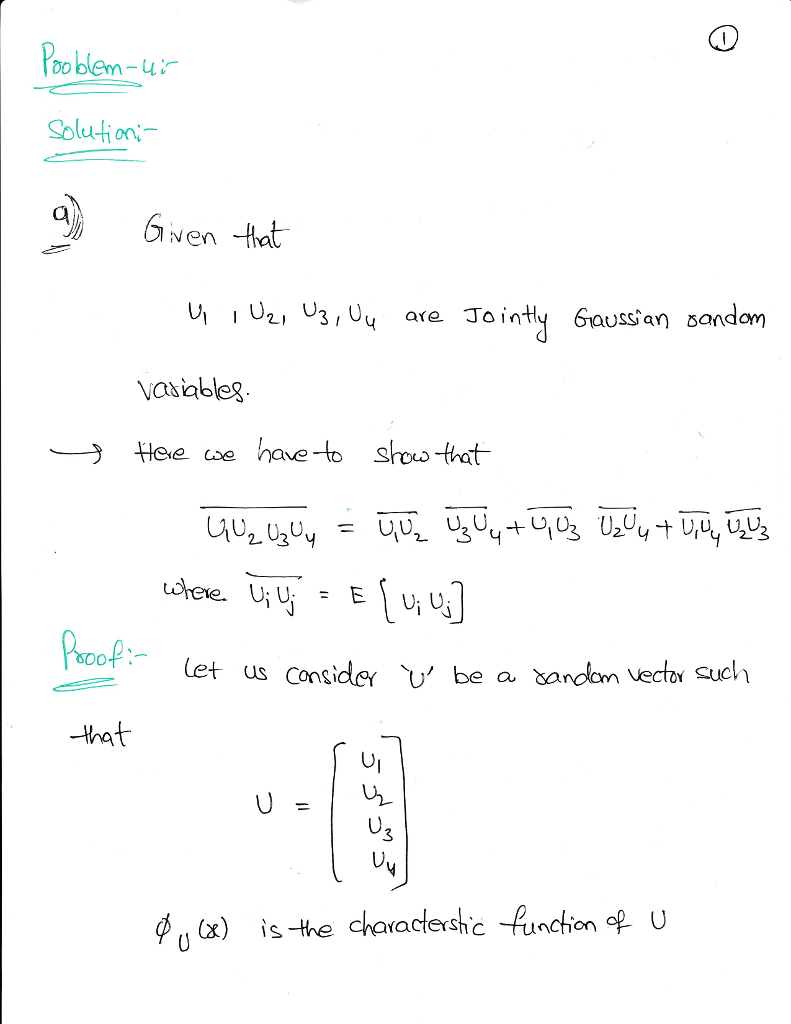 ①
Problem-4:-
Solution:-
a) Given that
U₁, U₂, U₃, U₄ are Jointly Gaussian random
variables.
→ Here we have to show that
U̅₁U̅₂U̅₃U̅₄ = U̅₁U̅₂ U̅₃U̅₄ + U̅₁U̅₃ U̅₂U̅₄ + U̅₁U̅₄ U̅₂U̅₃
where U̅ᵢU̅ⱼ = E[UᵢUⱼ]
Proof:- Let us consider 'U' be a random vector such
that
U = [U₁
U₂
U₃
U₄]
ϕ_U(x) is the characterstic function of U